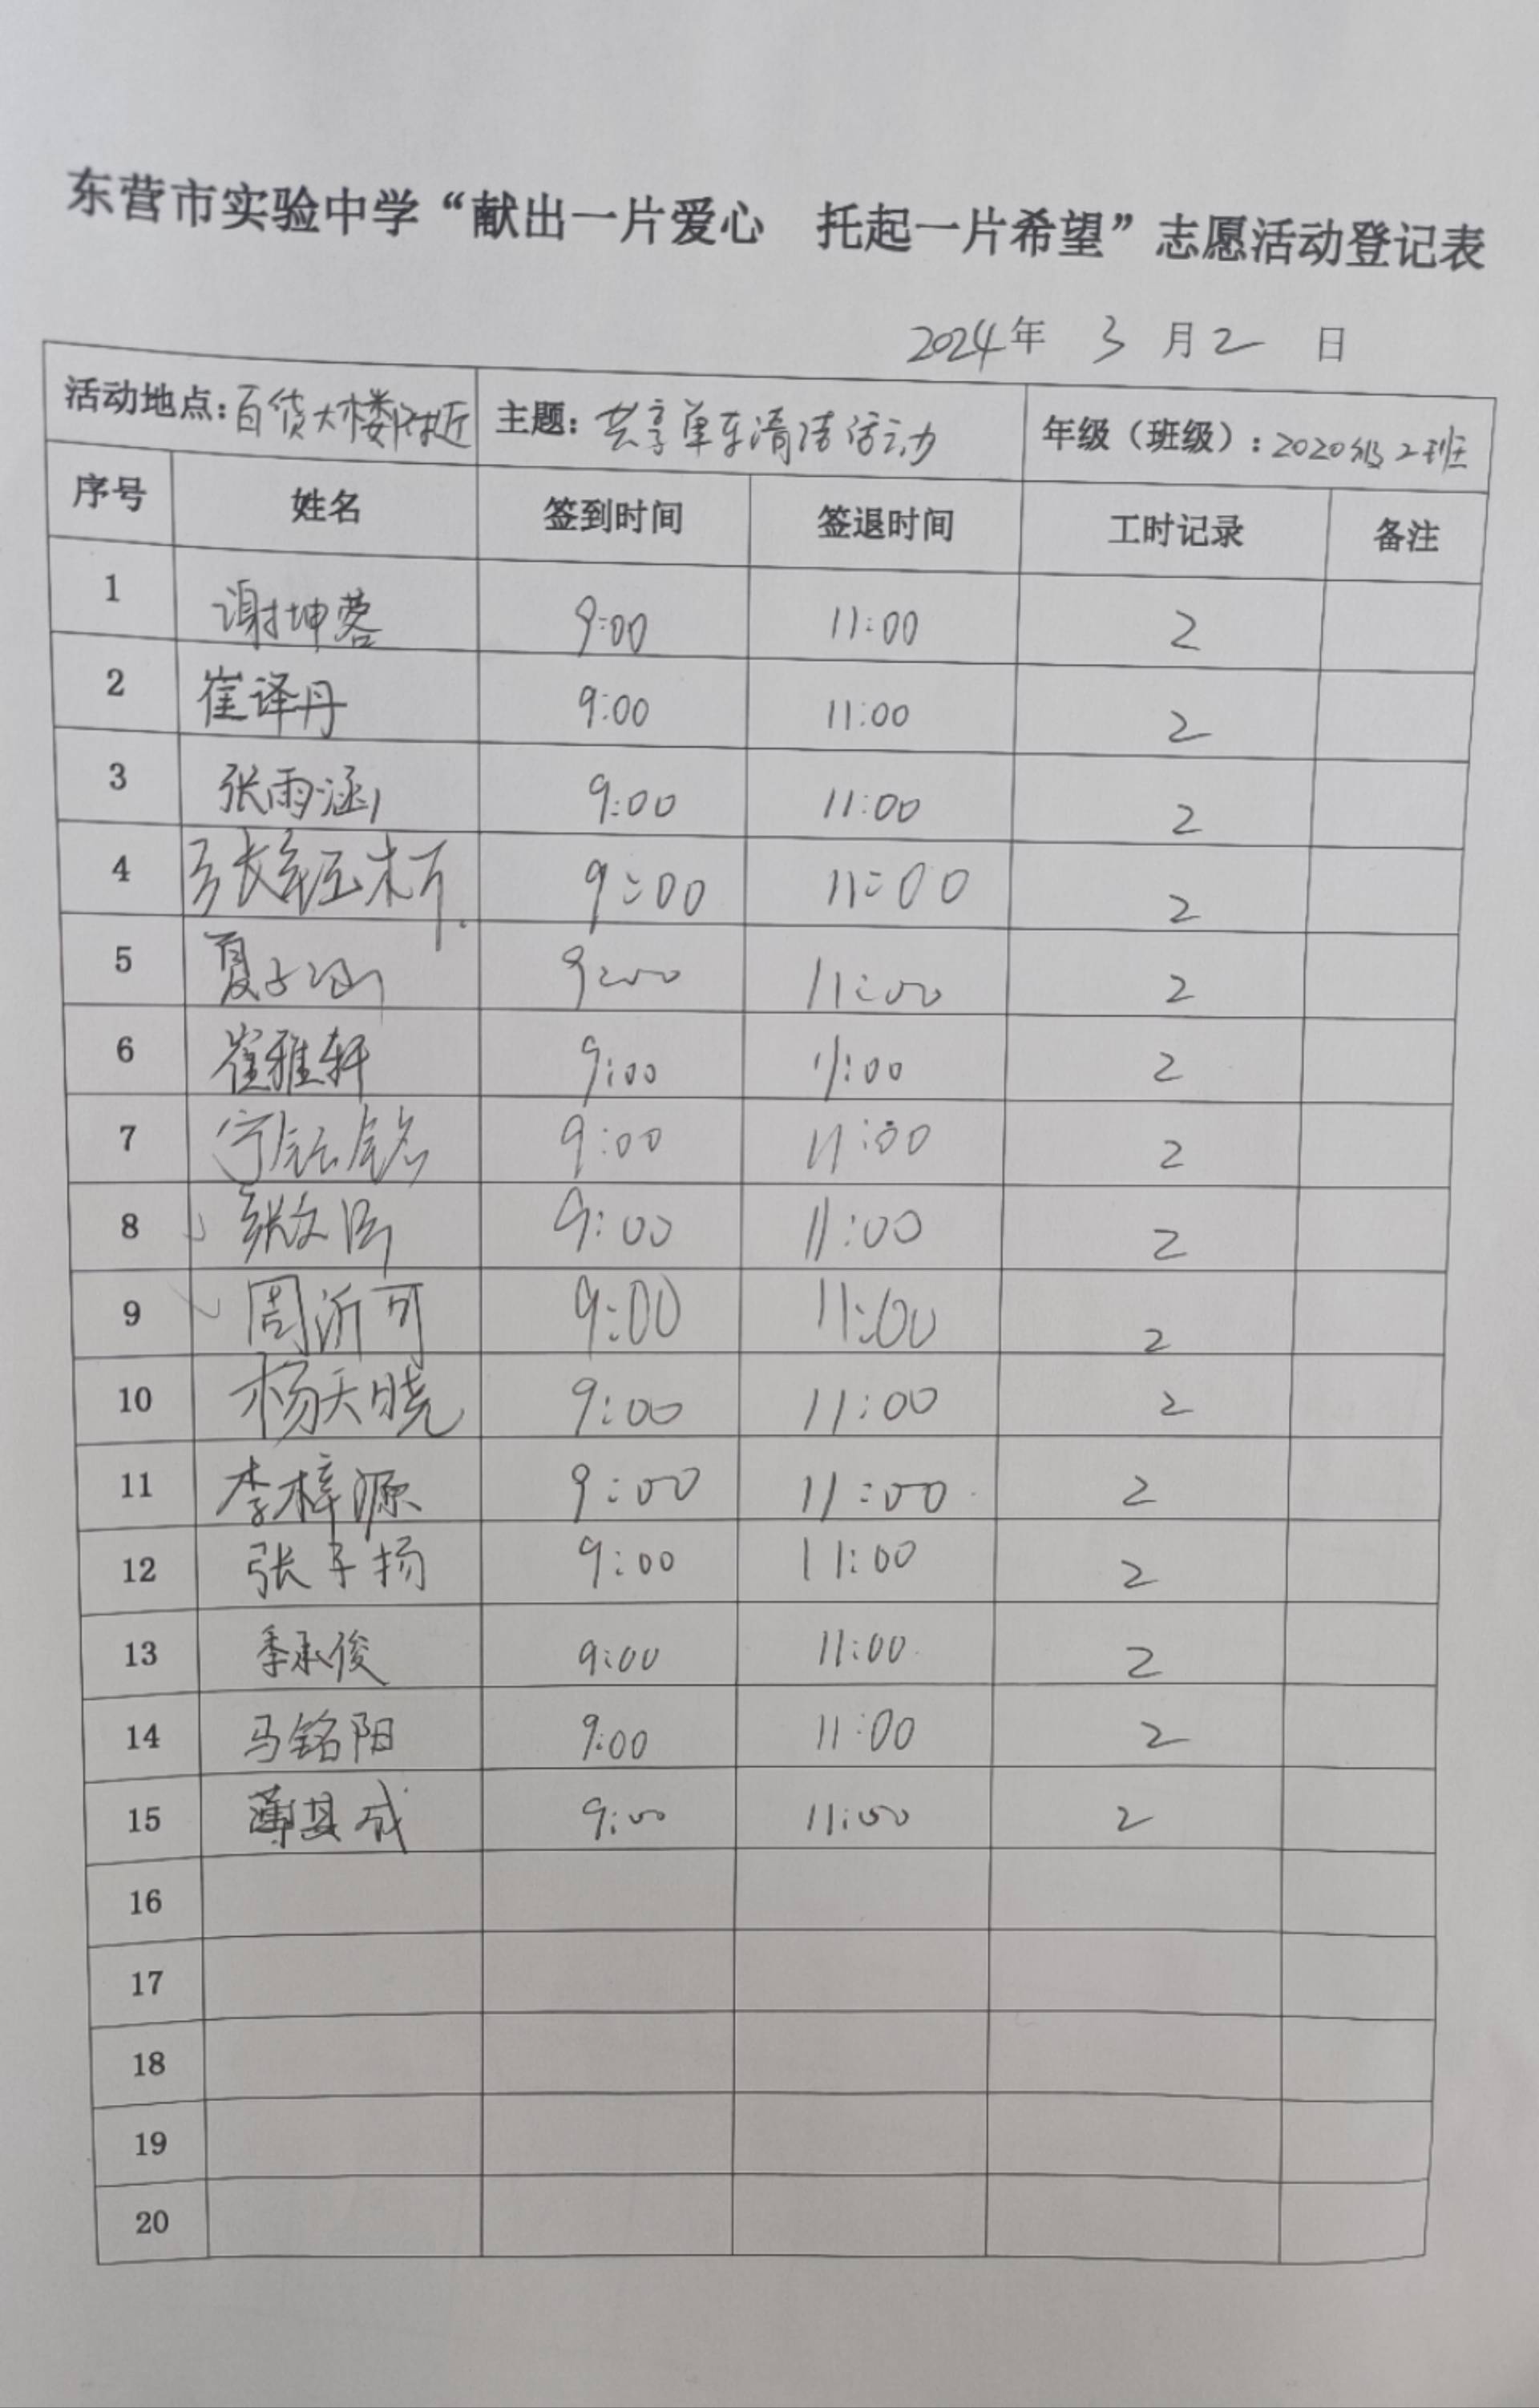 东营市实验中学“献出一片爱心 托起一片希望”志愿活动登记表
2024年 3 月 2 日
活动地点：百货大楼附近 主题：共享单车清洁活动 年级（班级）：2020级2班
序号 姓名 签到时间 签退时间 工时记录 备注
1 谢坤蓉 9:00 11:00 2
2 崔译丹 9:00 11:00 2
3 张雨涵 9:00 11:00 2
4 9:00 11:00 2
5 夏子涵 9:00 11:00 2
6 崔雅轩 9:00 11:00 2
7 9:00 11:00 2
8 9:00 11:00 2
9 周沂可 9:00 11:00 2
10 杨天晓 9:00 11:00 2
11 李梓源 9:00 11:00 2
12 张子扬 9:00 11:00 2
13 季承俊 9:00 11:00 2
14 马铭阳 9:00 11:00 2
15 薄其成 9:00 11:00 2
16
17
18
19
20